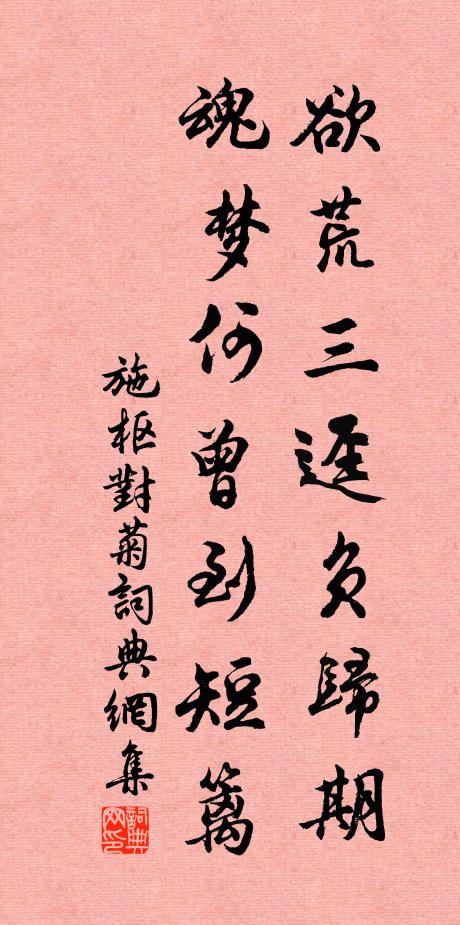 欲荒三迳负歸期
魂梦何曾到短篱
施枢對菊詞典網集
詞典网印